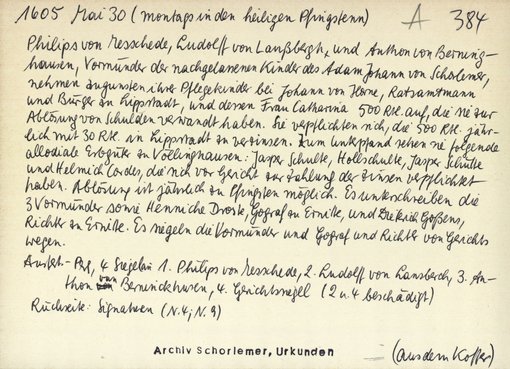 1605 Mai 30 (montags in den heiligen Pfingsten) A 384
Philips von Messchede, Ludolff von Lanßbergh, und Anthon von Berning-
hausen, Vormünder der nachgelassenen Kinder des Adam Johann von Schorlemer,
nehmen zugunsten ihrer Pflegekinder bei Johann von Hörne, Ratsamtmann
und Bürger zu Lippstadt, und dessen Frau Catharina 500 Rtl. auf, die sie zur
Ablösung von Schulden verwandt haben. Sie verpflichten sich, die 500 Rtl. jähr-
lich mit 30 Rtl. in Lippstadt zu verzinsen. Zum Unterpfand setzen sie folgende
allodiale Erbgüter zu Vollinghausen: Jasper Schulte, Hollschulte, Jasper Schütte
und Helmich Cordes, die sich vor Gericht zur Zahlung der Zinsen verpflichtet
haben. Ablösung ist jährlich zu Pfingsten möglich. Es unterschreiben die
3 Vormünder sowie Henniche Droste, Gograf zu Erwitte, und Dietrich Goßens,
Richter zu Erwitte. Es siegeln die Vormünder und Gograf und Richter von Gerichts
wegen.
Ausfert.- Perg, 4 Siegel an 1. Philips von Messchede, 2. Ludolff von Lansberch, 3. An-
thon von Berninckhusen, 4. Gerichtssiegel (2 u. 4 beschädigt)
Rückseite: Signaturen (N. 4; N. 9)
Archiv Schorlemer, Urkunden
(aus dem Koffer)